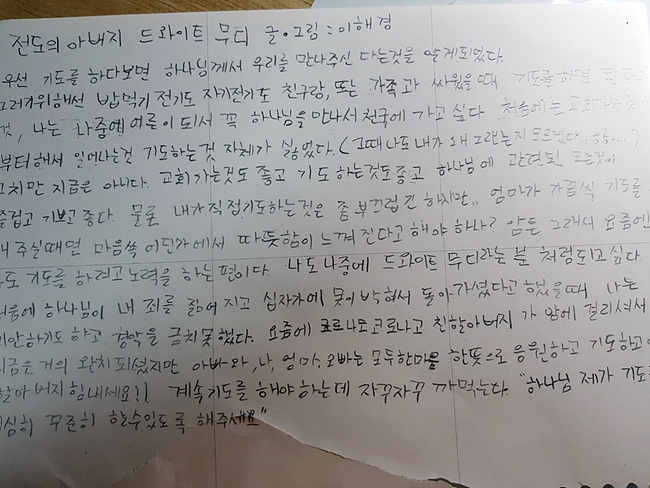 전도의 아버지 드와이트 무디 글·그림 : 이해경
우선 기도를 하다보면 하나님께서 우리를 만나주신 다는것을 알게되었다.
그러기위해선 밥먹기 전기도 자기전기도 친구랑, 또는 가족과 싸웠을때 기도를 하면
것, 나는 나중에 어른이 되서 꼭 하나님을 만나서 천국에 가고 싶다. 처음에는 교회
부터해서 일어나는것 기도하는것 자체가 싫었다. (그때 나도 내가 왜 그랬는지 모르겠다..
그치만 지금은 아니다. 교회 가는것도 좋고 기도하는것도좋고 하나님에 관련된 모든것이
즐겁고 기쁘고 좋다. 물론 내가직접기도하는것은 좀 부끄럽긴 하지만.. 엄마가 가끔씩 기도를
해 주실때면 마음쏙 어딘가에서 따뜻함이 느껴진다고 해야 하나? 암튼 그래서 요즘에
나도 기도를 하려고 노력을 하는 편이다. 나도 나중에 드와이트 무디라는 분 처럼되고싶다.
처음에 하나님이 내 죄를 짊어 지고 십자가에 못이 박혀서 돌아가셨다고 했을때 나는
미안하기도 하고, 경악을 금치못했다. 요즘에 코로나도 코로나고 친할아버지 가 암에 걸리셔서
지금은 거의 완치되셨지만 아빠와, 나, 엄마, 오빠는 모두한마음 한뜻으로 응원하고 기도하고
할아버지힘내세요?! 계속기도를 해야하는데 자꾸자꾸 까먹는다. "하나님 제가 기도를
열심히 꾸준히 할수있도록 해주세요"